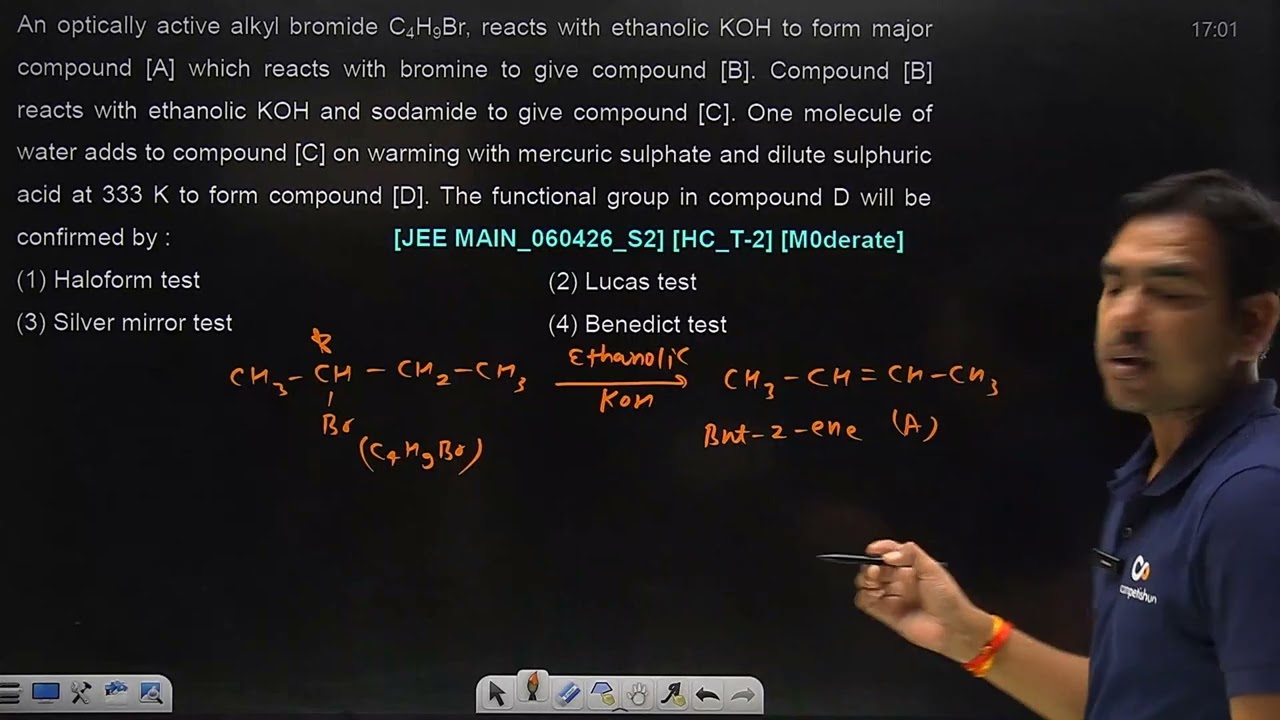 An optically active alkyl bromide C₄H₉Br, reacts with ethanolic KOH to form major
17:01
compound [A] which reacts with bromine to give compound [B]. Compound [B]
reacts with ethanolic KOH and sodamide to give compound [C]. One molecule of
water adds to compound [C] on warming with mercuric sulphate and dilute sulphuric
acid at 333 K to form compound [D]. The functional group in compound D will be
confirmed by : [JEE MAIN_060426_S2] [HC_T-2] [M0derate]
(1) Haloform test (2) Lucas test
(3) Silver mirror test (4) Benedict test
*
CH₃-CH-CH₂-CH₃ Ethanolic CH₃-CH=CH-CH₃
Br KOH But-2-ene (A)
(C₄H₉Br)
competishun